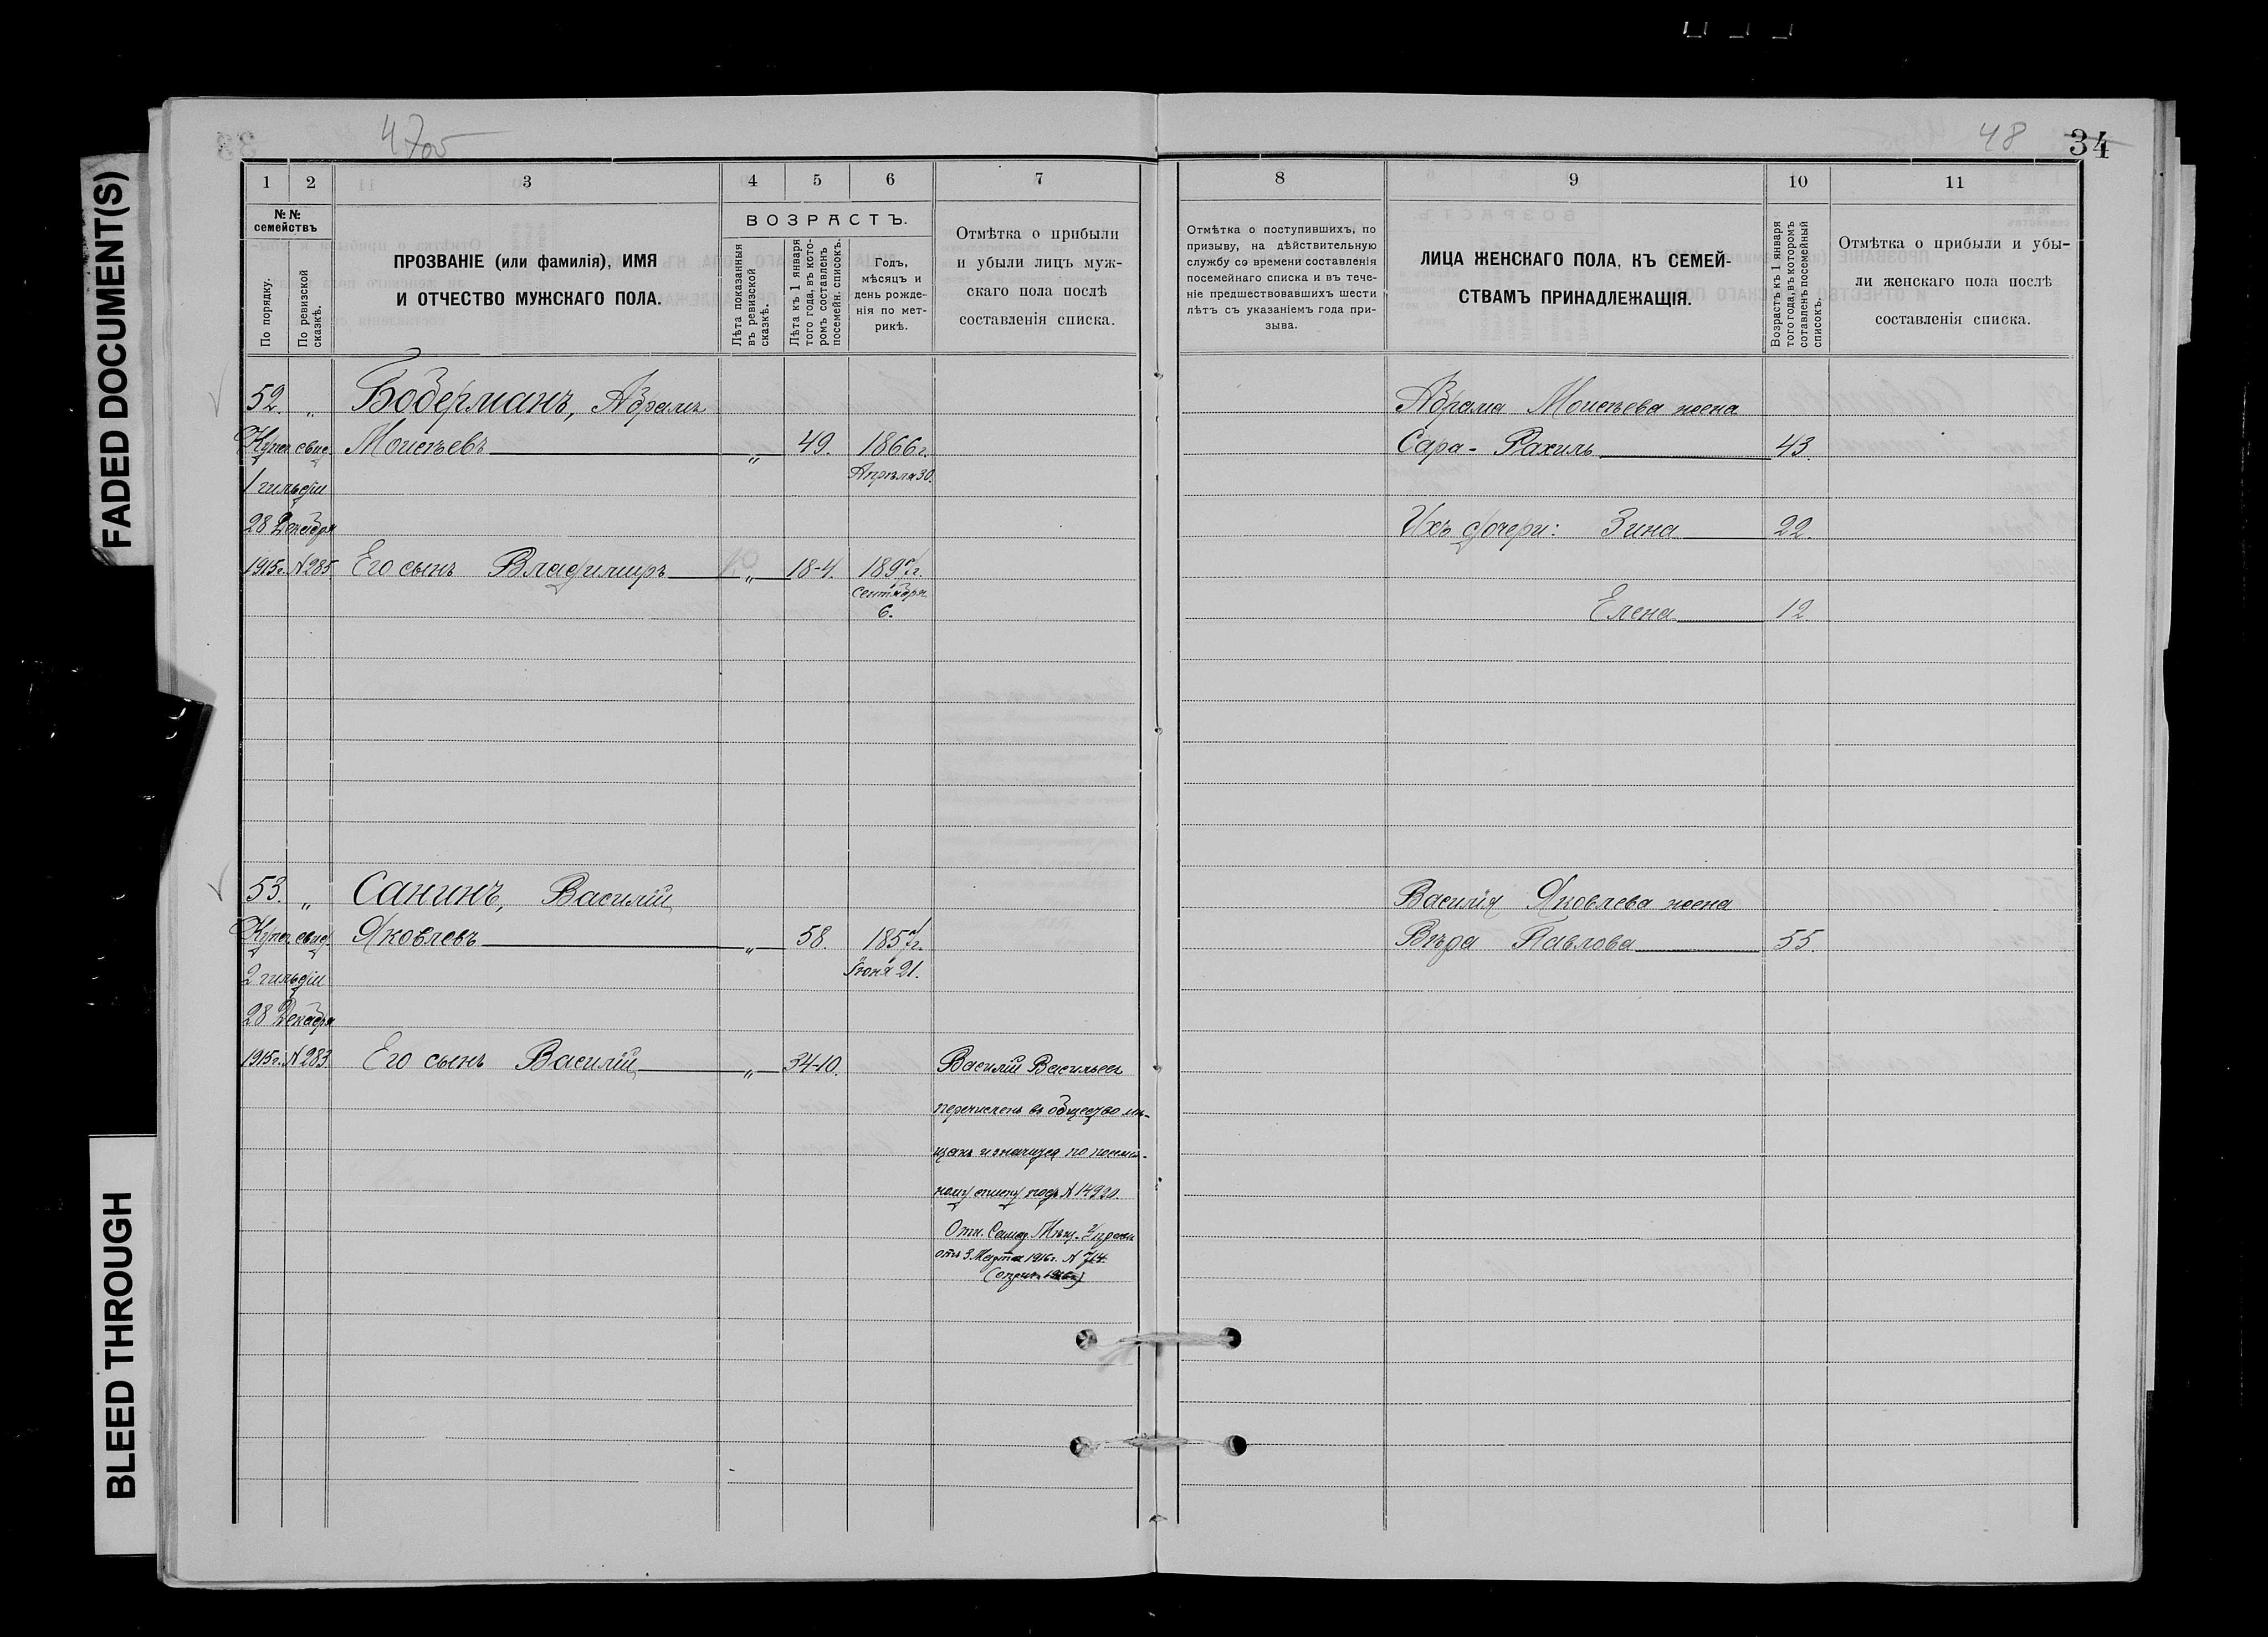 FADED DOCUMENT(S)
BLEED THROUGH
47об
48
34
1 2 3 4 5 6 7
№ №
семействъ
По порядку.
По ревизской
сказкѣ.
ПРОЗВАНІЕ (или фамилія), ИМЯ
И ОТЧЕСТВО МУЖСКАГО ПОЛА.
ВОЗРАСТЪ.
Лѣта показанныя
въ ревизской
сказкѣ.
Лѣта къ 1 января
того года, въ кото-
ромъ составленъ
посемейн. списокъ.
Годъ,
мѣсяцъ и
день рожде-
нія по мет-
рикѣ.
Отмѣтка о прибыли
и убыли лицъ муж-
скаго пола послѣ
составленія списка.
52. „ Боберманъ, Абрамъ
Купеч. свид. Моисѣевъ „ 49. 1866г.
1 гильдіи Апрѣля 30.
28 Декабря
1915г. № 285 Его сынъ Владимиръ „ 18-4. 1897г.
Сентября
6.
53. „ Санинъ, Василій
Купеч. свид. Яковлевъ „ 58. 1857г.
2 гильдіи Іюня 21.
28 Декабря
1915г. № 283. Его сынъ Василій „ 34-10. Василій Васильевъ
перечисленъ въ общество мѣ-
щанъ и значится по посемей-
ному списку подъ № 14920.
Отн. Самар. Мѣщ. Управы
отъ 3 Марта 1916г. № 714
8 9 10 11
Отмѣтка о поступившихъ, по
призыву, на дѣйствительную
службу со времени составленія
посемейнаго списка и въ тече-
ніе предшествовавшихъ шести
лѣтъ съ указаніемъ года при-
зыва.
ЛИЦА ЖЕНСКАГО ПОЛА, КЪ СЕМЕЙ-
СТВАМЪ ПРИНАДЛЕЖАЩІЯ.
Возрастъ къ 1 января
того года, въ которомъ
составленъ посемейный
списокъ.
Отмѣтка о прибыли и убы-
ли женскаго пола послѣ
составленія списка.
Абрама Моисѣева жена
Сара-Рахиль 43.
Ихъ дочери: Зина 22.
Елена 12.
Василія Яковлева жена
Вѣра Павлова 55.